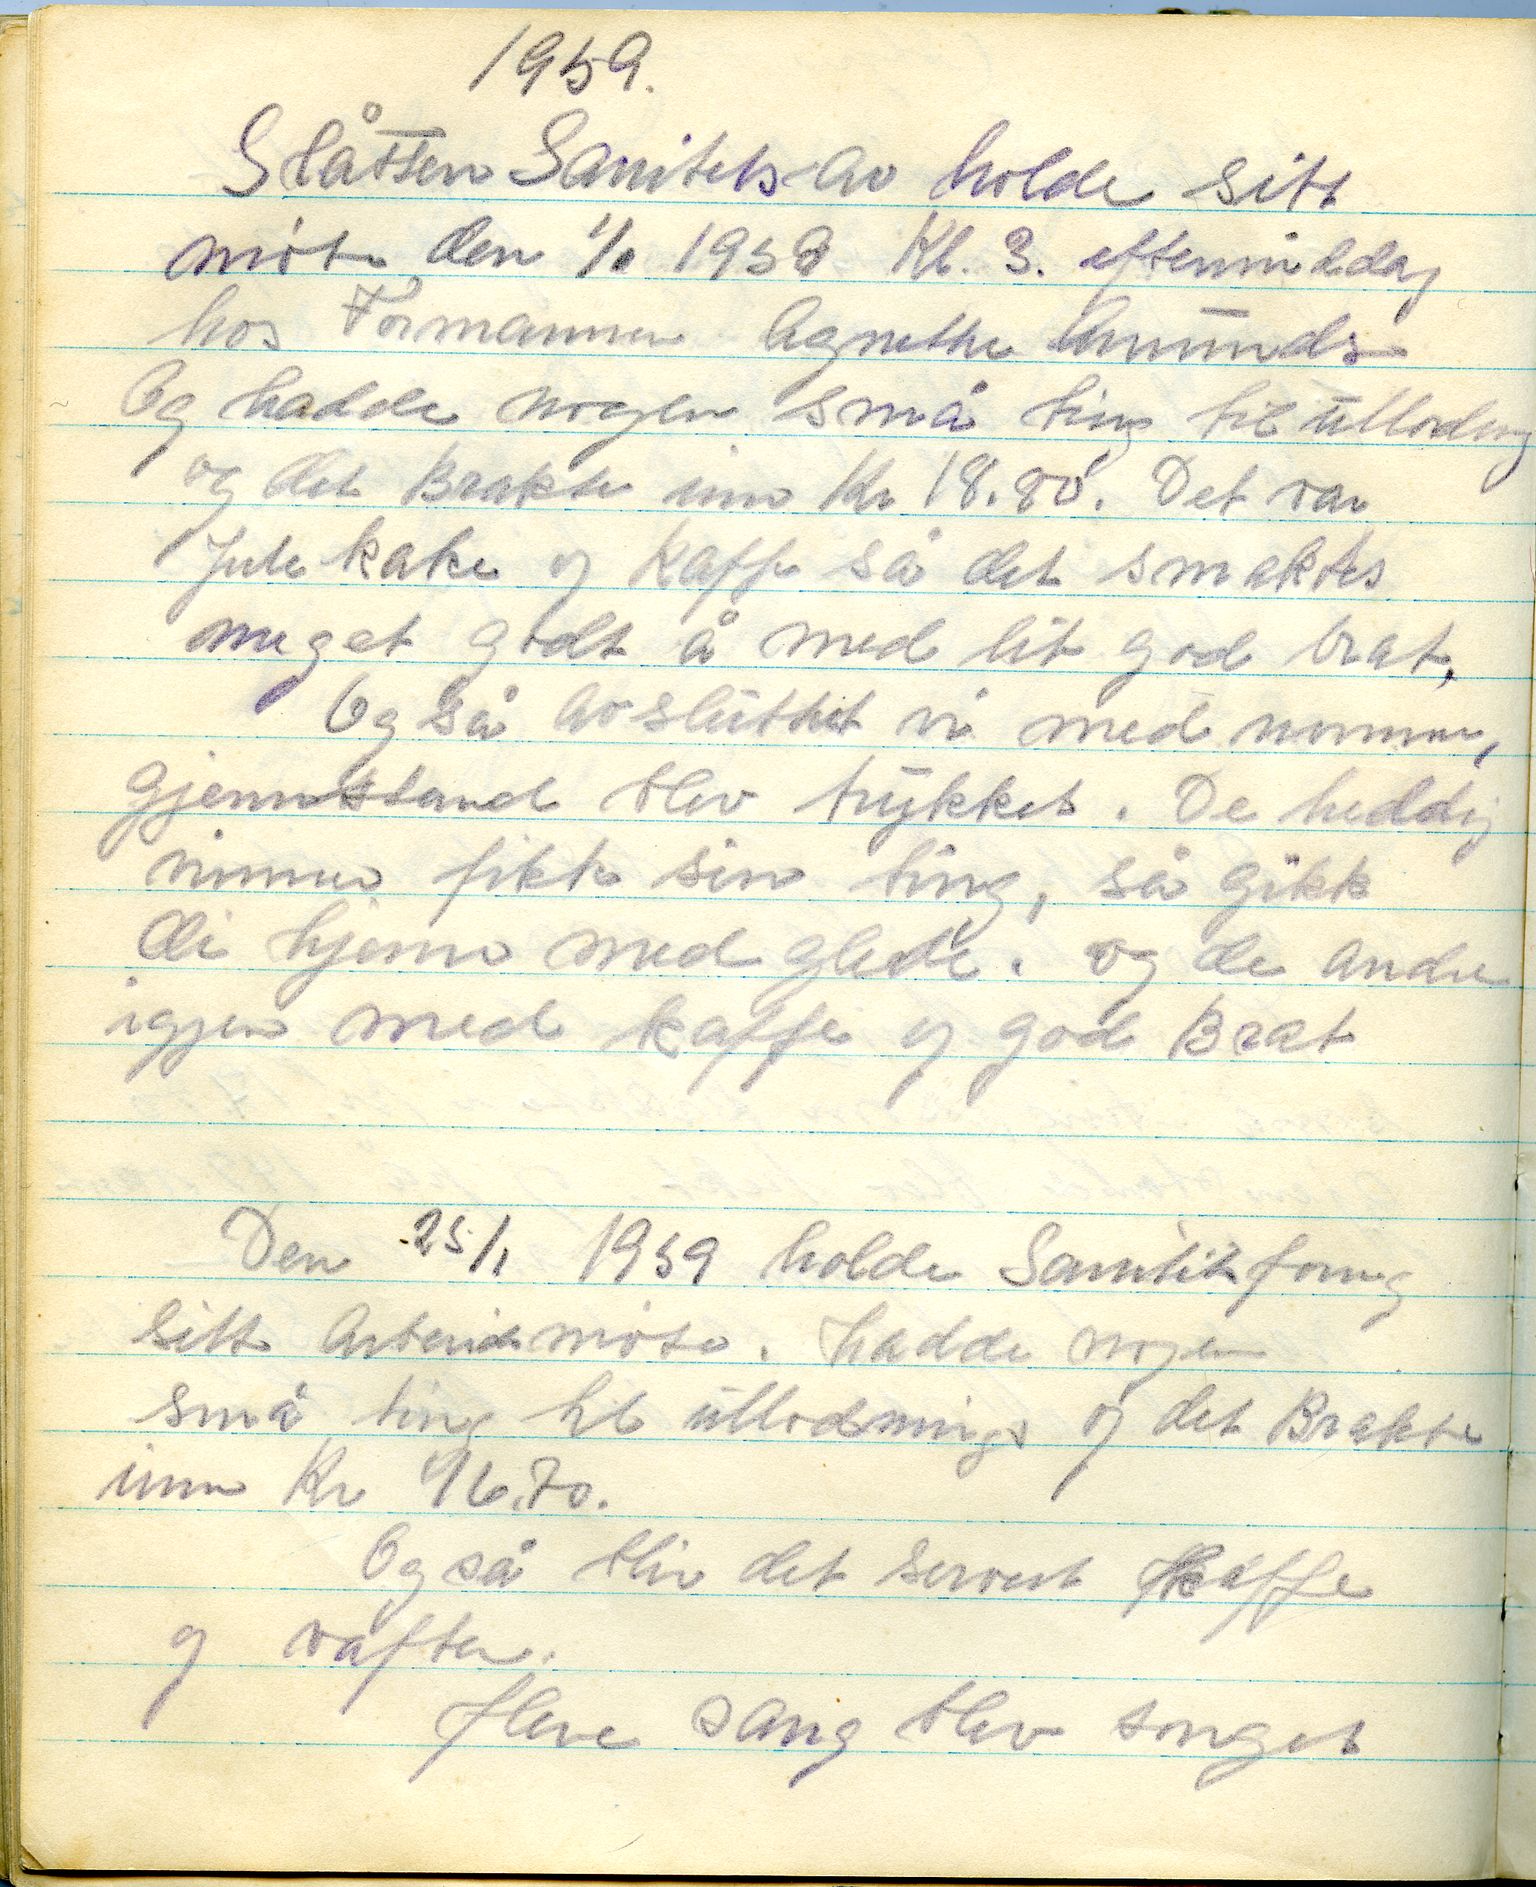 1959.
Slåtten Sanitets Av holde sitt
møte den 1/1 1959 Kl. 3. eftermiddag
hos Formannen Agnethe Amunds
Og hadde nogen små ting til utlodning
og det Brakte inn Kr 18.80. Det var
Jule kake og Kaffe så det smaktes
meget godt å med lit god brat,
Og så Avsluttet vi med
gjennstand blev trykket. De heddig
vinner fikk sin ting, så gikk
di hjem med glede. og de andre
igjen med kaffe og god Brat
Den 25/1 1959 holde Sanitet foreng
sitt Arbeids møte. hadde nogen
små ting til utlodning og det Brakte
inn Kr 16.70.
Og så bliv det servert Kaffe
og vafler.
flere sang blev songet